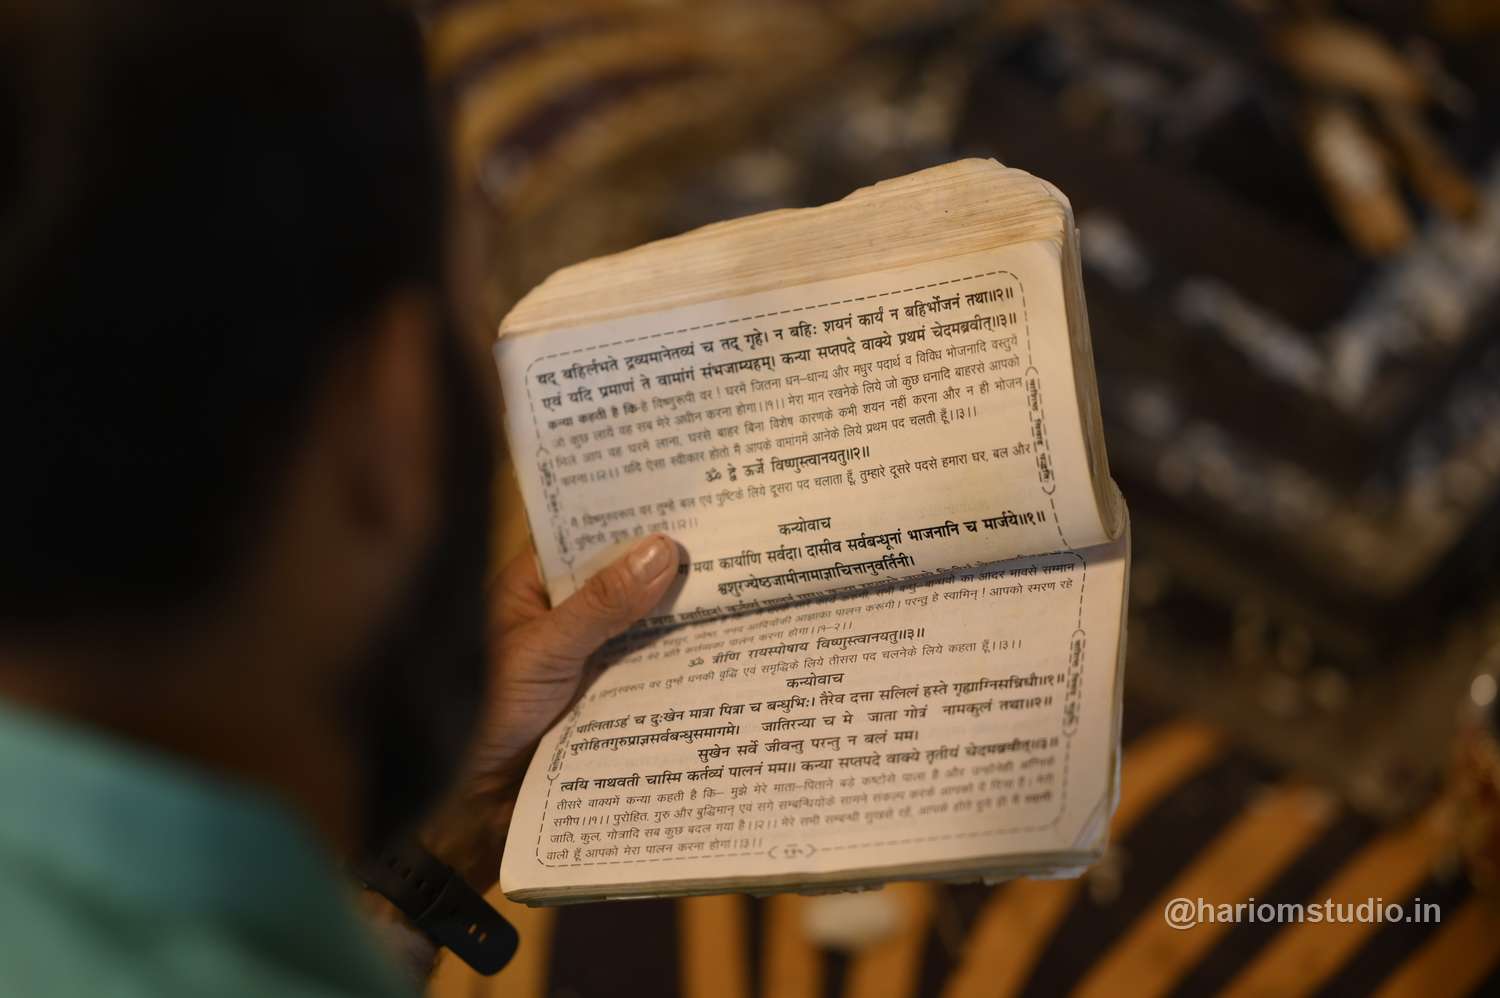 यद् बहिर्लभते द्रव्यमानेतव्यं च तद् गृहे। न बहिः शयनं कार्यं न बहिर्भोजनं तथा॥२॥
एवं यदि प्रमाणं ते वामांगं संभजाम्यहम्। कन्या सप्तपदे वाक्ये प्रथमं चेदमब्रवीत्॥३॥
कन्या कहती है कि-हे विष्णुरूपी वर! घरमें जितना धन-धान्य और मधुर पदार्थ व विविध भोजनादि वस्तुयें
जो कुछ लायें वह सब मेरे अधीन करना होगा।।१।। मेरा मान रखनेके लिये जो कुछ धनादि बाहरसे आपको
मिले आप वह घरमें लाना, घरसे बाहर बिना विशेष कारणके कभी शयन नहीं करना और न ही भोजन
करना।।२।। यदि ऐसा स्वीकार होतो मैं आपके वामांगमें आनेके लिये प्रथम पद चलती हूँ।।३।।
ॐ द्वे ऊर्जे विष्णुस्त्वानयतु॥२॥
मैं विष्णुस्वरूप वर तुम्हें बल एवं पुष्टिके लिये दूसरा पद चलाता हूँ, तुम्हारे दूसरे पदसे हमारा घर, बल और
पुष्टिसे युक्त हो जाये।।२।।
कन्योवाच
मया कार्याणि सर्वदा। दासीव सर्वबन्धूनां भाजनानि च मार्जये॥१॥
श्वशुरज्येष्ठजामीनामाज्ञाचित्तानुवर्तिनी।
का आदर भावसे सम्मान
आज्ञाका पालन करूगी। परन्तु हे स्वामिन्! आपको स्मरण रहे
मेरे प्रति कर्तव्यका पालन करना होगा।।१-२।।
ॐ त्रीणि रायस्पोषाय विष्णुस्त्वानयतु॥३॥
विष्णुस्वरूप वर तुम्हें धनकी वृद्धि एवं समृद्धिके लिये तीसरा पद चलनेके लिये कहता हूँ।।३।।
कन्योवाच
पालिताऽहं च दुःखेन मात्रा पित्रा च बन्धुभिः। तैरेव दत्ता सलिलं हस्ते गृह्याग्निसन्निधौ॥१॥
पुरोहितगुरुप्राज्ञसर्वबन्धुसमागमे। जातिरन्या च मे जाता गोत्रं नामकुलं तथा॥२॥
सुखेन सर्वे जीवन्तु परन्तु न बलं मम।
त्वयि नाथवती चास्मि कर्तव्यं पालनं मम॥ कन्या सप्तपदे वाक्ये तृतीयं चेदमब्रवीत्॥३॥
तीसरे वाक्यमें कन्या कहती है कि– मुझे मेरे माता-पिताने बड़े कष्टोसे पाला है और उन्होंनेही अग्निके
समीप।।१।। पुरोहित, गुरु और बुद्धिमान् एवं सगे सम्बन्धियोंके सामने संकल्प करके आपको दे दिया है। मेरी
जाति, कुल, गोत्रादि सब कुछ बदल गया है।।२।। मेरे सभी सम्बन्धी सुखसे रहें, आपके होते हुए ही मैं
वाली हूँ आपको मेरा पालन करना होगा।।३।।
@hariomstudio.in